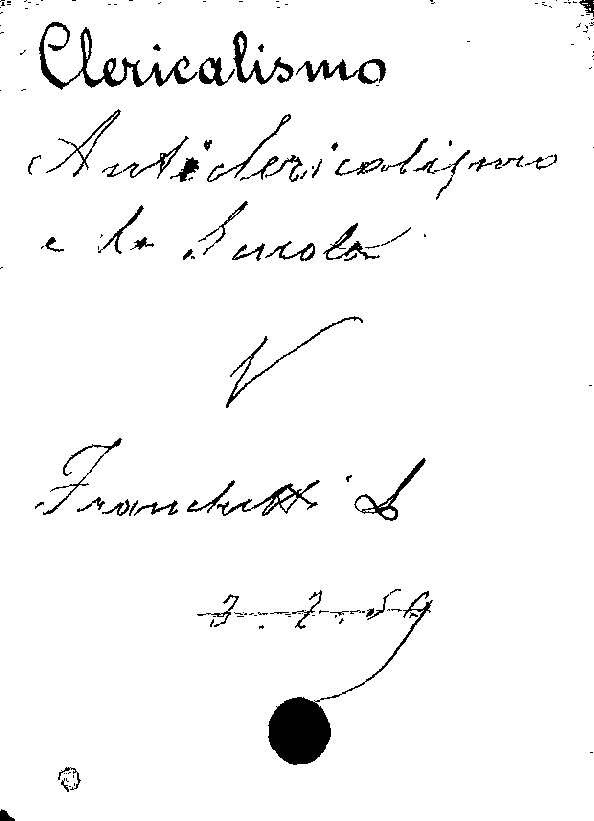 Clericalismo
Anticlericalismo
e la Scuola
V
Franchetti L
3. 2. 59